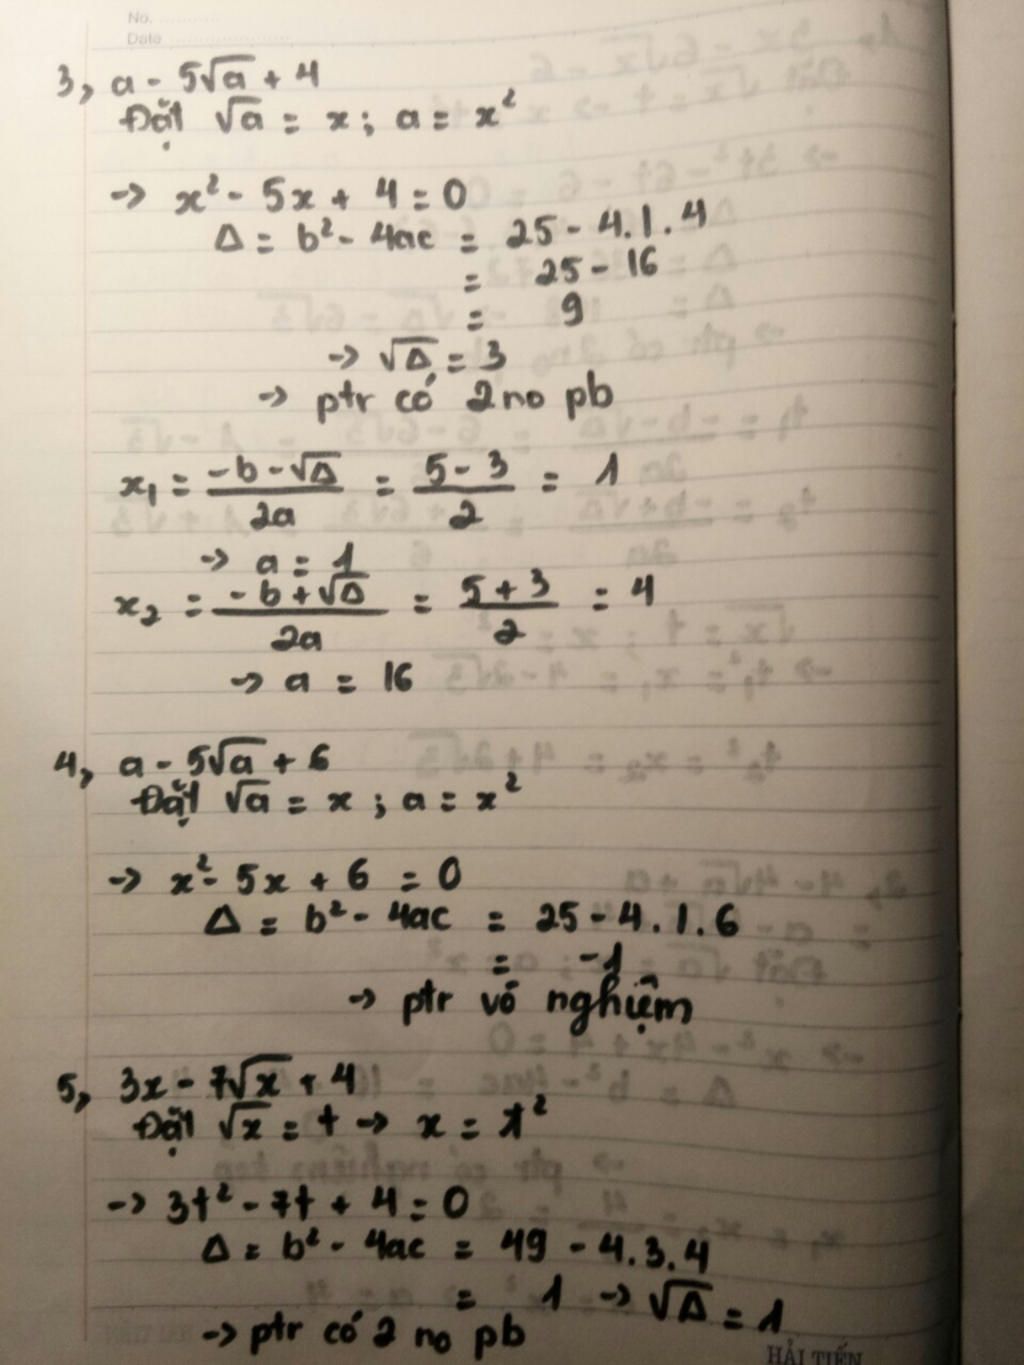 No.
Date
3, a - 5√a + 4
Đặt √a = x ; a = x²
-> x² - 5x + 4 = 0
Δ = b² - 4ac = 25 - 4.1.4
= 25 - 16
= 9
-> √Δ = 3
-> ptr có 2 no pb
x₁ = (-b - √Δ)/2a = (5 - 3)/2 = 1
-> a = 1
x₂ = (-b + √Δ)/2a = (5 + 3)/2 = 4
-> a = 16
4, a - 5√a + 6
Đặt √a = x ; a = x²
-> x² - 5x + 6 = 0
Δ = b² - 4ac = 25 - 4.1.6
= -1
-> ptr vô nghiệm
5, 3x - 7√x + 4
Đặt √x = t -> x = t²
-> 3t² - 7t + 4 = 0
Δ = b² - 4ac = 49 - 4.3.4
= 1 -> √Δ = 1
-> ptr có 2 no pb
HẢI TIẾN